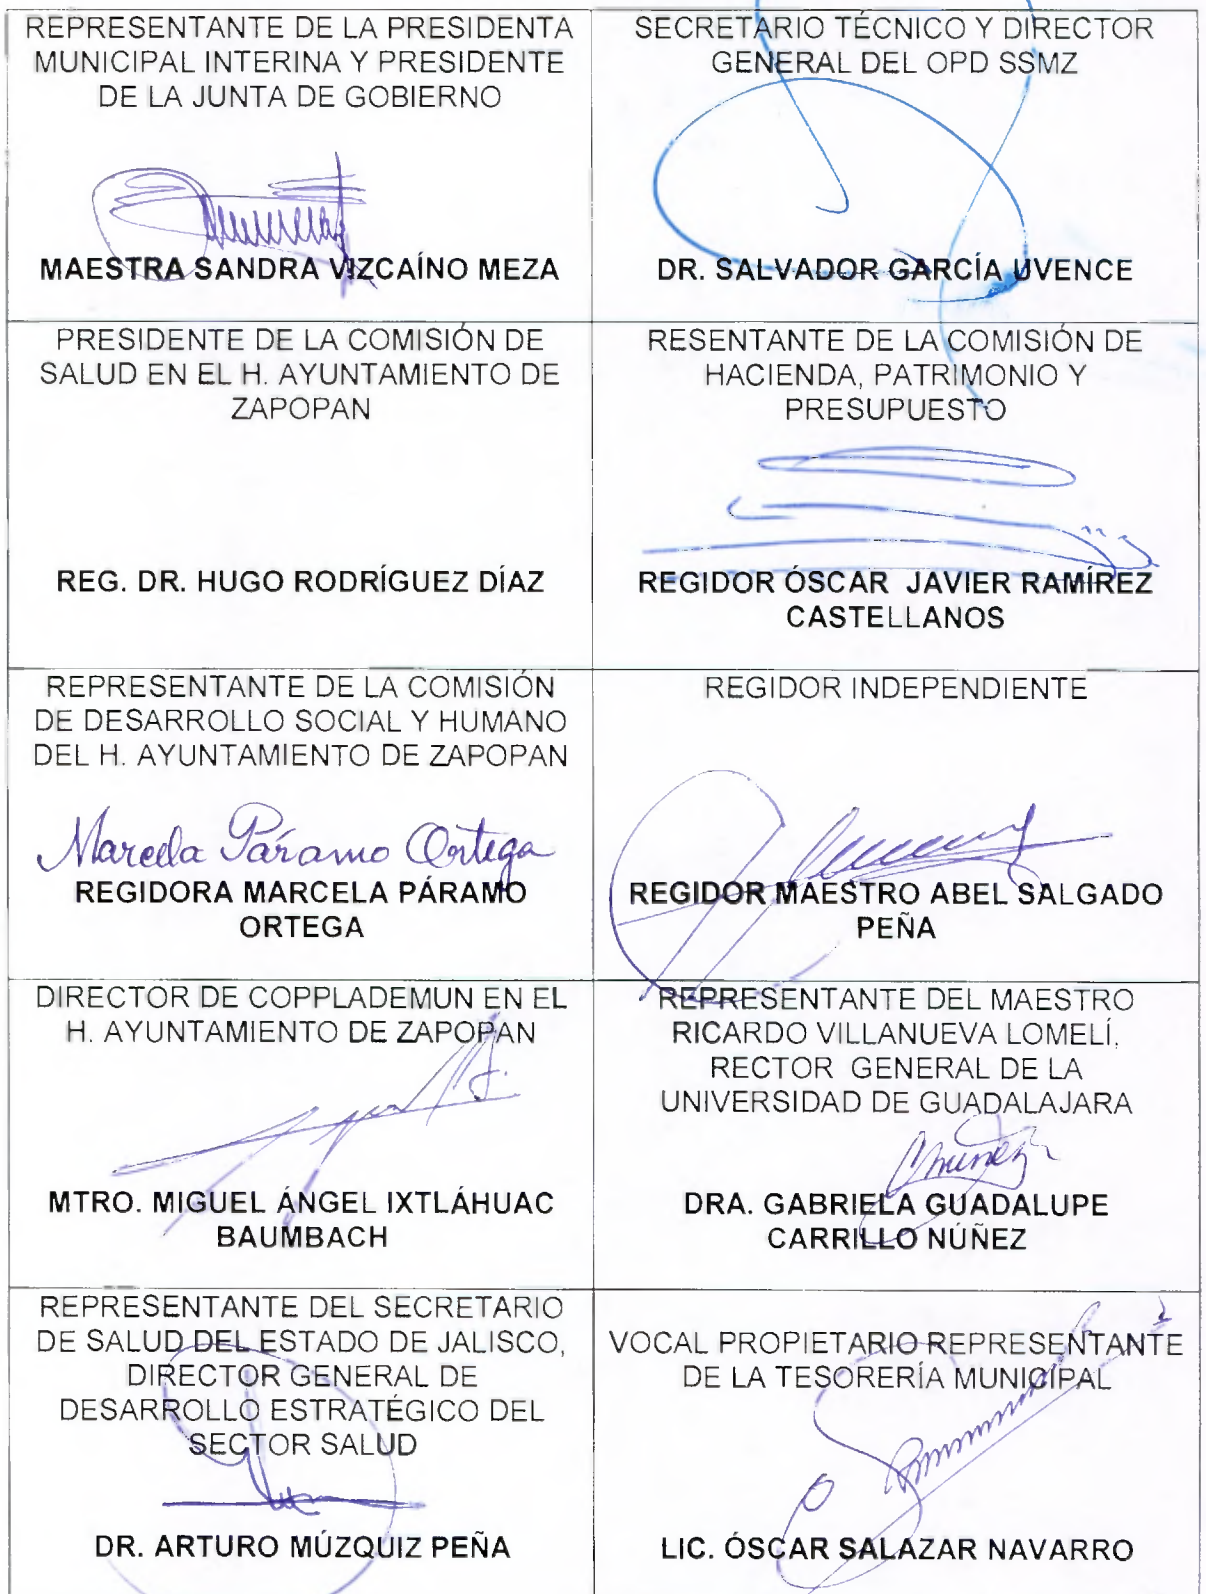 REPRESENTANTE DE LA PRESIDENTA
MUNICIPAL INTERINA Y PRESIDENTE
DE LA JUNTA DE GOBIERNO
MAESTRA SANDRA VIZCAÍNO MEZA
SECRETARIO TÉCNICO Y DIRECTOR
GENERAL DEL OPD SSMZ
DR. SALVADOR GARCÍA UVENCE
PRESIDENTE DE LA COMISIÓN DE
SALUD EN EL H. AYUNTAMIENTO DE
ZAPOPAN
REG. DR. HUGO RODRÍGUEZ DÍAZ
RESENTANTE DE LA COMISIÓN DE
HACIENDA, PATRIMONIO Y
PRESUPUESTO
REGIDOR ÓSCAR JAVIER RAMÍREZ
CASTELLANOS
REPRESENTANTE DE LA COMISIÓN
DE DESARROLLO SOCIAL Y HUMANO
DEL H. AYUNTAMIENTO DE ZAPOPAN
Marcela Páramo Ortega
REGIDORA MARCELA PÁRAMO
ORTEGA
REGIDOR INDEPENDIENTE
REGIDOR MAESTRO ABEL SALGADO
PEÑA
DIRECTOR DE COPPLADEMUN EN EL
H. AYUNTAMIENTO DE ZAPOPAN
MTRO. MIGUEL ÁNGEL IXTLÁHUAC
BAUMBACH
REPRESENTANTE DEL MAESTRO
RICARDO VILLANUEVA LOMELÍ,
RECTOR GENERAL DE LA
UNIVERSIDAD DE GUADALAJARA
DRA. GABRIELA GUADALUPE
CARRILLO NÚÑEZ
REPRESENTANTE DEL SECRETARIO
DE SALUD DEL ESTADO DE JALISCO,
DIRECTOR GENERAL DE
DESARROLLO ESTRATÉGICO DEL
SECTOR SALUD
DR. ARTURO MÚZQUIZ PEÑA
VOCAL PROPIETARIO REPRESENTANTE
DE LA TESORERÍA MUNICIPAL
LIC. ÓSCAR SALAZAR NAVARRO